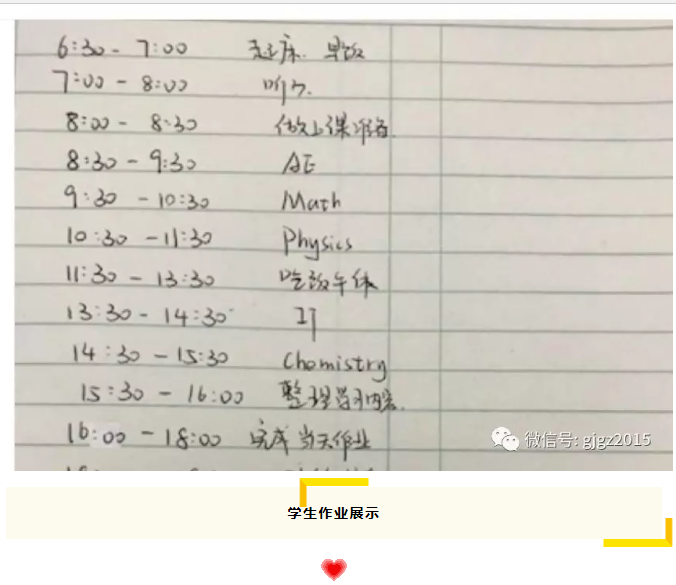 6:30 - 7:00 起床. 早饭
7:00 - 8:00 听力.
8:00 - 8:30 做上课准备.
8:30 - 9:30 AE
9:30 - 10:30 Math
10:30 - 11:30 Physics
11:30 - 13:30 吃饭午休
13:30 - 14:30 IT
14:30 - 15:30 Chomistry
15:30 - 16:00 整理学习内容.
16:00 - 18:00 完成当天作业
微信号: gjgz2015
学生作业展示